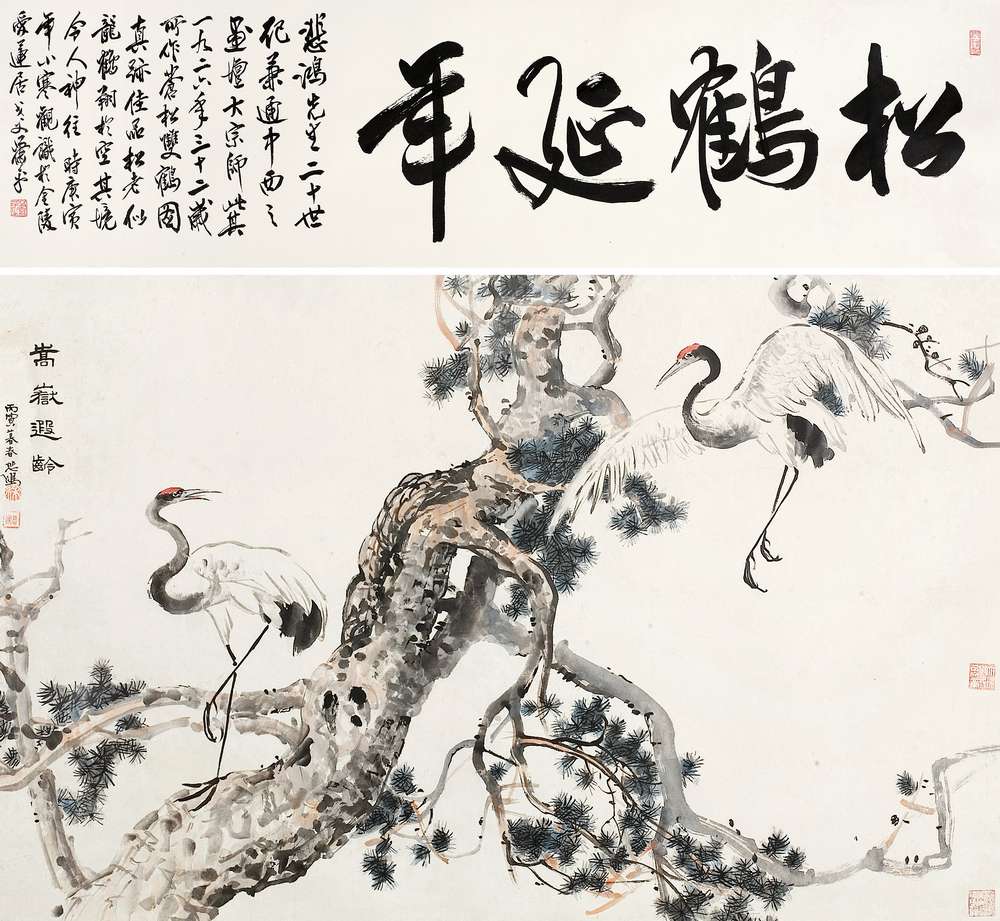 松鶴延年
悲鴻先生二十世
紀兼通中西之
畫壇大宗師此其
一九二六年三十二歲
所作蒼松雙鶴圖
真跡佳品松老似
龍鶴翔於空其境
令人神往時庚寅
年小寒觀識於金陵
愛蓮居
嵩嶽遐齡
丙寅暮春悲鴻